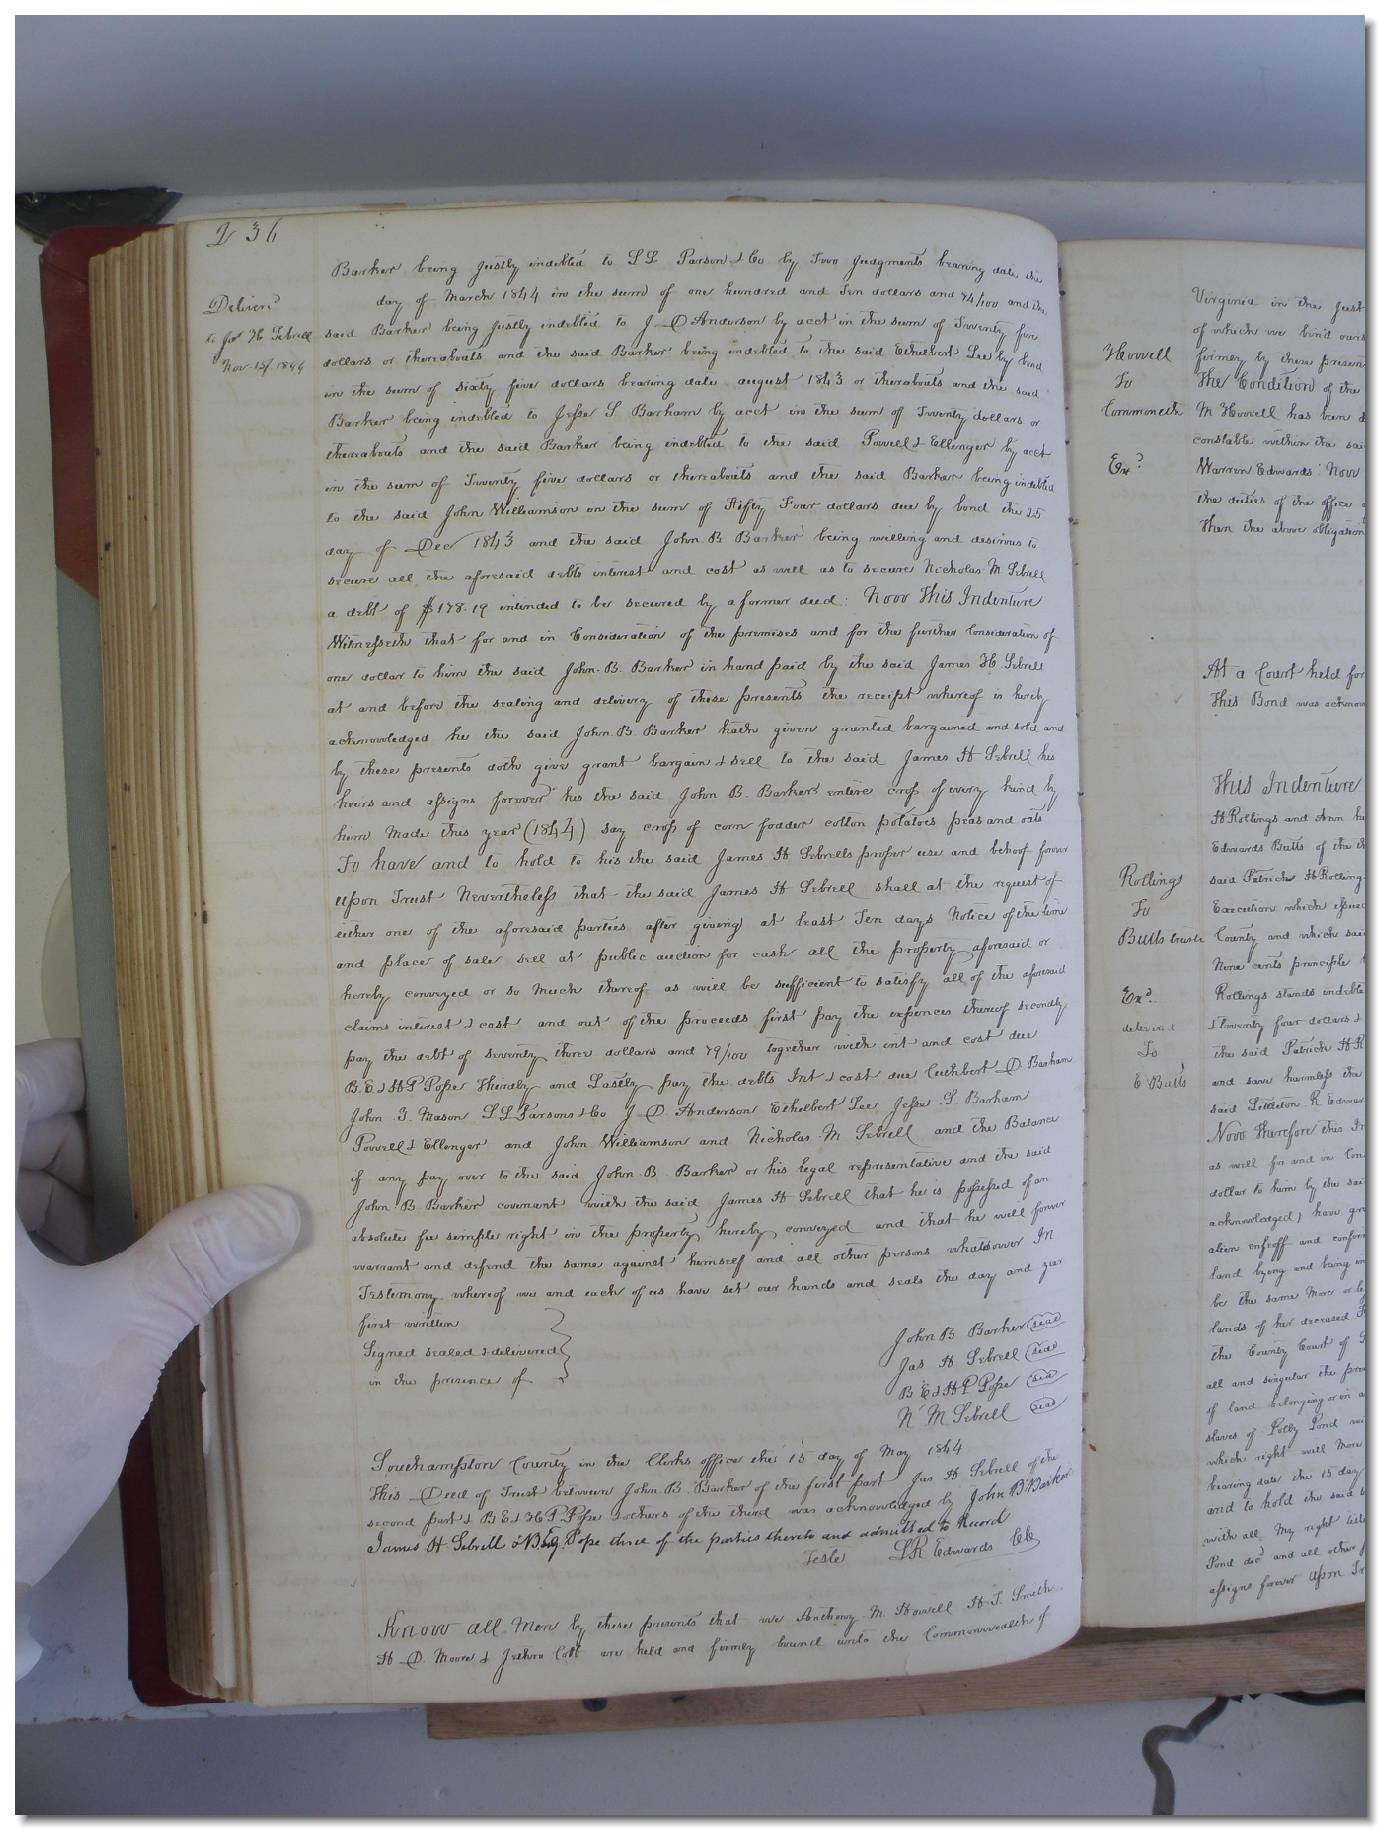 236
Deliver'd
to Jas H Sebrell
Nov 15th 1844
Barker being justly indebted to L L Parson & Co by Two Judgments bearing date the
day of March 1844 in the sum of one hundred and Ten dollars and 74/100 and the
said Barker being justly indebted to J. D Anderson by acct in the sum of Twenty five
dollars or thereabouts and the said Barker being indebted to the said Ethelbert Lee by bond
in the sum of sixty five dollars bearing date august 1843 or therabouts and the said
Barker being indebted to Jesse S. Barham by acct in the sum of Twenty dollars or
therabouts and the said Barker being indebted to the said Powell & Ellenger by acct
in the sum of Twenty five dollars or thereabouts and the said Barker being indebted
to the said John Williamson in the sum of Fifty Four dollars due by bond the 25
day of Dec 1843 and the said John B Barker being willing and desirous to
secure all the aforesaid debts interest and cost as well as to secure Nicholas M. Sebrell
a debt of $178.19 intended to be secured by a former deed. Now This Indenture
Witnesseth that for and in Consideration of the premises and for the further Consideration of
one dollar to him the said John B. Barker in hand paid by the said James H Sebrell
at and before the sealing and delivery of these presents the receipt whereof is hereby
acknowledged he the said John B. Barker hath given granted bargained and sold and
by these presents doth give grant bargain & sell to the said James H Sebrell his
heirs and assigns forever his the said John B. Barker entire crop of every kind by
him Made this year (1844) say crop of corn fodder cotton potatoes peas and oats
To have and to hold to his the said James H Sebrells proper use and behoof forever
upon Trust Nevertheless that the said James H Sebrell shall at the request of
either one of the aforesaid parties after giving at least Ten days Notice of the time
and place of sale sell at public auction for cash all the property aforesaid or
hereby conveyed or so Much thereof as will be sufficient to satisfy all of the aforesaid
claims interest & cost and out of the proceeds first pay the expences thereof secondly
pay the debt of seventy three dollars and 79/100 together with int and cost due
B. E & H P Pope Thirdly and Lastly pay the debts Int & cost due Cuthbert D. Barham
John Mason L L Parsons & Co J. D. Anderson Ethelbert Lee Jesse S Barham
Powell & Ellenger and John Williamson and Nicholas M Sebrell and the Balance
if any pay over to the said John B. Barker or his legal representative and the said
John B Barker covenant with the said James H Sebrell that he is possessed of an
absolute fee simple right in the property hereby conveyed and that he will forever
warrant and defend the same against himself and all other persons whatsoever In
Testimony whereof we and each of us have set our hands and seals the day and year
first written
Signed sealed & delivered
in the presence of
John B Barker seal
Jas H Sebrell seal
B E & H P Pope seal
N M Sebrell seal
Southampton County in the Clerks office the 15 day of May 1844
This Deed of Trust between John B. Barker of the first part Jas H Sebrell of the
second part & B E & H P Pope & others of the third was acknowledged by John B Barker
James H Sebrell & Pope three of the parties thereto and admitted to Record
Teste L R Edwards Clk
Know all Men by these presents that we Anthony M. Howell H. J. Smith
H. D. Moore & Jethro Cobb are held and firmly bound unto the Commonwealth of
Howell
To
Commonwth
Exd
Virginia in the just
of which we bind ours
firmly by these presen
The Condition of the
M Howell has been
constable within the sai
Warren Edwards Now
the duties of the office
then the above obligation
At a Court held for
This Bond was acknow
Rollings
To
Butts trustee
Exd
delivered
To
E Butts
This Indenture
H Rollings and Ann
Edwards Butts of the
said Patrick H Rolling
Execution which issue
County and which sai
Nine cents principle
Rollings stands indebte
& Twenty four dollars &
the said Patrick H R
and save harmless the
said Littleton R. Edwar
Now Therefore this In
as well for and in Con
dollar to him by the sai
acknowledged) have gr
alien enfeoff and confir
land lying and being in
be the same More or le
lands of her deceased
the County Court of
all and singular the pre
of land belonging or in a
slaves of Polly Pond
which right will More
bearing date the 15 day
and to hold the said
with all My right
Pond decd and all other
assigns forever Upon Tr